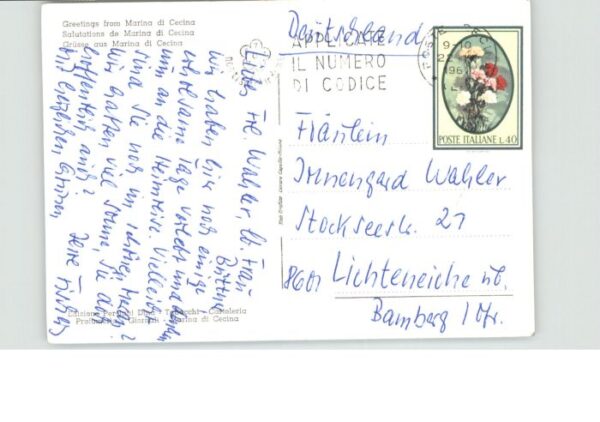 Greetings from Marina di Cecina
Salutations de Marina di Cecina
Grüsse aus Marina di Cecina
Deutschland
APPLICATE
IL NUMERO
DI CODICE
9-10
196
POSTE ITALIANE L.40
Liebes Frl. Wahler, lb. Frau
wir haben hier noch einige
erholsame Tage verlebt und
nun an die Heimreise.
sind Sie noch im
wir hatten viel Sonne, Sie auch
hoffentlich auch?
mit herzlichen Grüssen,
Fräulein
Irmengard Wahler
Stockseestr. 21
8601 Lichteneiche üb.
Bamberg / Ofr.
Edizione
Giornali - Marina di Cecina